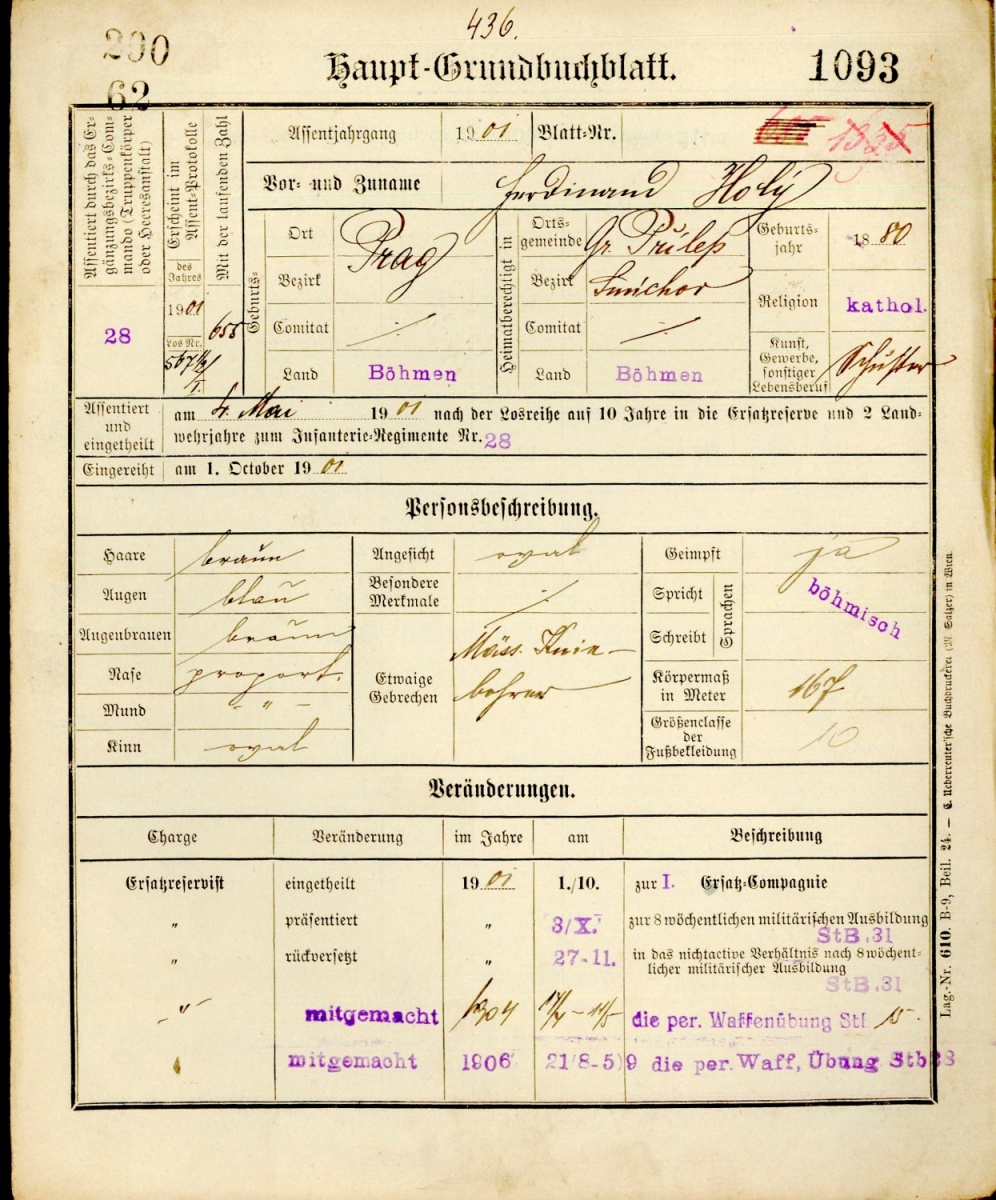 436.
200
62
Haupt-Grundbuchblatt.
1093
Assentiert durch das Ergänzungsbezirks-Commando (Truppenkörper oder Heeresanstalt)
28
Erscheint im Assent-Protokolle
des Jahres
1901
Los Nr.
Mit der laufenden Zahl
655
Assentjahrgang 1901 Blatt-Nr.
Vor- und Zuname Ferdinand Holý
Geburts-
Ort Prag
Bezirk
Comitat ./.
Land Böhmen
Heimatberechtigt in
Ortsgemeinde Gr. Přílep
Bezirk Smichov
Comitat ./.
Land Böhmen
Geburtsjahr 1880
Religion kathol.
Kunst, Gewerbe, sonstiger Lebensberuf Schuster
Assentiert und eingetheilt
am 4. Mai 1901 nach der Losreihe auf 10 Jahre in die Ersatzreserve und 2 Land-
wehrjahre zum Infanterie-Regimente Nr. 28
Eingereiht am 1. October 1901
Personsbeschreibung.
Haare braun
Augen blau
Augenbrauen braun
Nase proport.
Mund - " -
Kinn oval
Angesicht oval
Besondere Merkmale ./.
Etwaige Gebrechen Mäss. Knie-
bohrer
Geimpft ja
Spricht
Schreibt
Sprachen
böhmisch
Körpermaß in Meter 167
Größenclasse der Fußbekleidung 10
Veränderungen.
Charge Veränderung im Jahre am Beschreibung
Ersatzreservist eingetheilt 1901 1./10. zur I. Ersatz-Compagnie
" präsentiert " 3/X. zur 8 wöchentlichen militärischen Ausbildung
StB.31
" rückversetzt " 27-11. in das nichtactive Verhältnis nach 8 wöchent-
licher militärischer Ausbildung
StB.31
" mitgemacht 1904 die per. Waffenübung Stl 15.
mitgemacht 1906 21/8-5/9 die per. Waff, Übung Stb 28
Lag.-Nr. 610. B-9, Beil. 24. — C. Ueberreuter'sche Buchdruckerei (M. Salzer) in Wien.